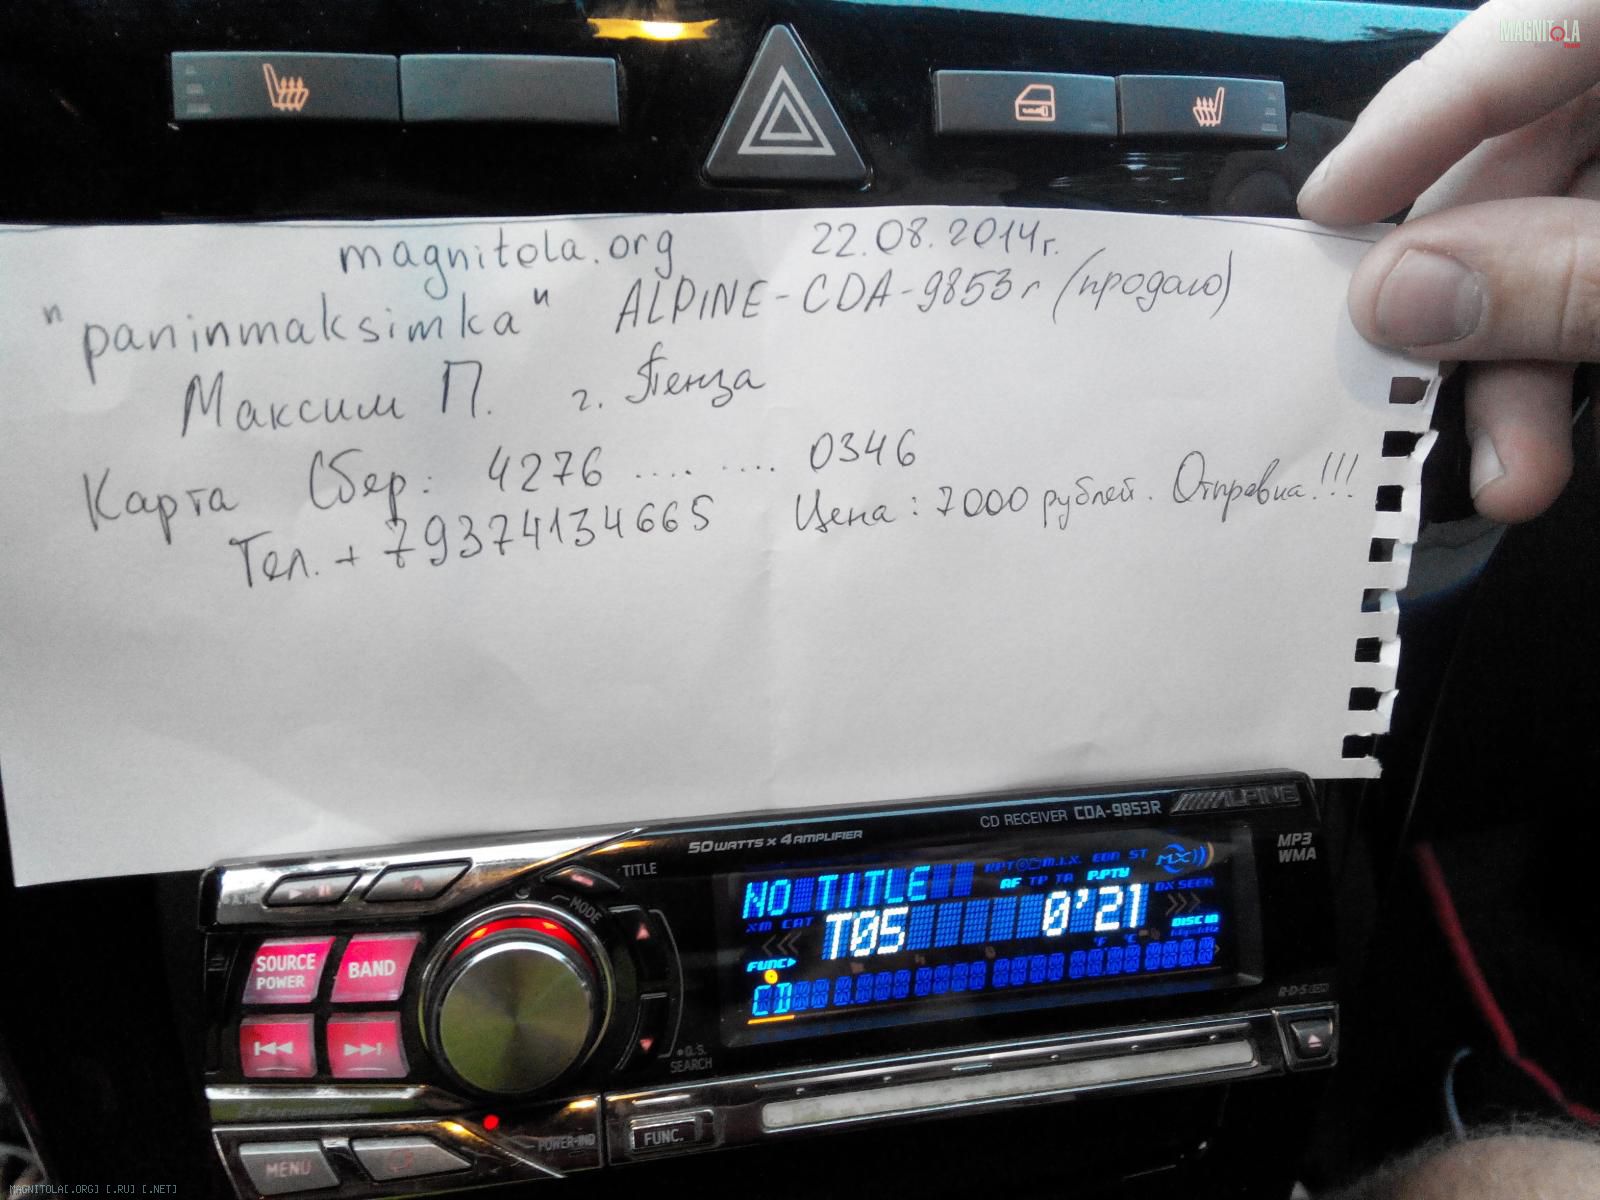 MAGNITOLA
magnitola.org 22.08.2014г.
"paninmaksimka" ALPINE-CDA-9853r (продаю)
Максим П. г. Пенза
Карта Сбер: 4276 .... .... 0346
Тел. +79374134665 Цена: 7000 рублей. Отправка!!!
CD RECEIVER CDA-9853R ALPINE
50WATTS x 4 AMPLIFIER
MP3
WMA
TITLE
MODE
SOURCE
POWER
BAND
NO TITLE
RPT M.I.X. EON ST MX
AF TP TA P.PTY
XM CAT
T05 0'21
DX SEEK
DISC IN
FUNC
CD
R·D·S EON
Q.S.
SEARCH
POWER-IND
FUNC.
MENU
MAGNITOLA[.ORG] [.RU] [.NET]